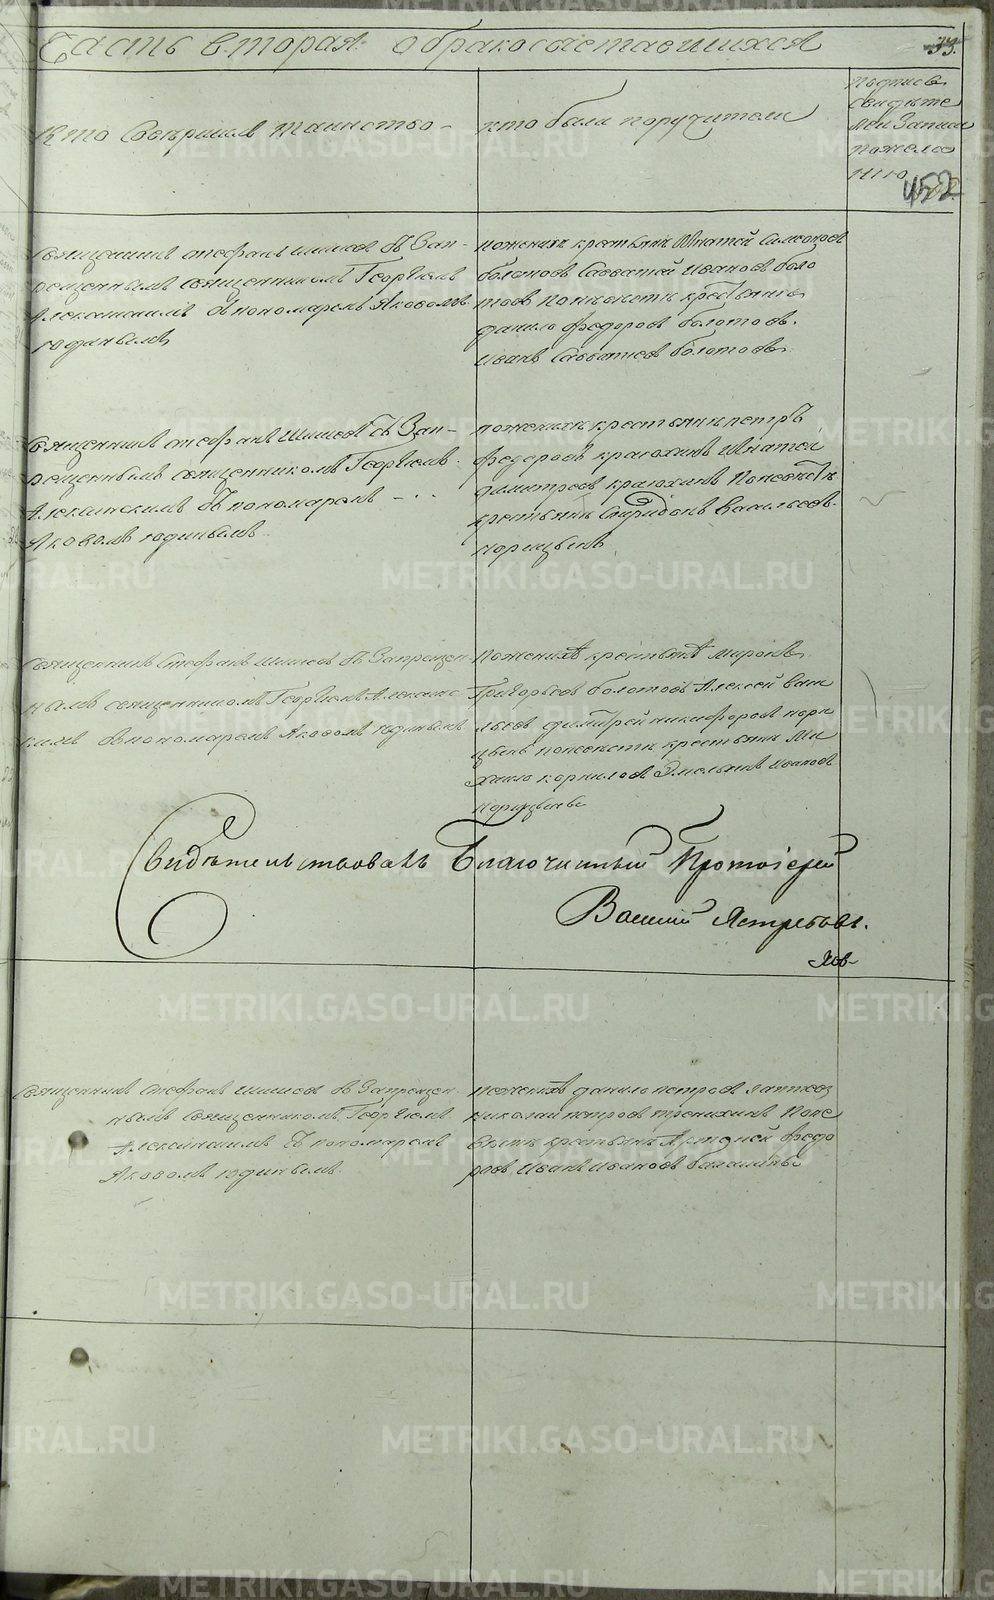 Часть вторая о бракосочетавшихся
33.
Кто Совершилъ таинство
кто были поручители
подписъ
свидѣте
лей Записи
пожелае
нiю
452
Священникъ стефанъ Шишевъ съ Зап-
рещеннымъ священникомъ Георгiемъ
Алексинскимъ съ пономаремъ Яковомъ
юдинымъ
поженихѣ крестьянѣ Игнатей Симеоновъ
болотовъ Савватей Ивановъ боло
товъ Поневестѣ крестьянѣ
данило федоровъ болотовъ.
Иванъ Савватеевъ болотовъ
Священникъ стефанъ Шишевъ съ Зап-
рещеннымъ священникомъ Георгiемъ
Алексинскимъ съ пономаремъ
Яковомъ юдинымъ
поженихѣ крестьянѣ петръ
федоровъ Игнатей
димитревъ Поневестѣ
крестьянѣ Спиридонъ Васильевъ
норицынъ
Священникъ Стефанъ Шишевъ съ Запрещен
нымъ священникомъ Георгiемъ Алексинс
кимъ съ пономаремъ Яковомъ юдинымъ
Поженихѣ крестьянѣ миронъ
Григорьевъ болотовъ Алексей Васи
льевъ димитрей никифоровъ нори
цынъ поневестѣ крестьянѣ Ми
хайло корниловъ Ивановъ
норицынъ
Свидѣтельствовалъ Благочинный Протоiерей
Василiй Ястребовъ.
METRIKI.GASO-URAL.RU
Священникъ Стефанъ Шишевъ съ Запрещен
нымъ Священникомъ Георгiемъ
Алексинскимъ Съ пономаремъ
Яковомъ юдинымъ.
Поженихѣ данило петровъ
николай петровъ Поне
вестѣ крестьянѣ Артемей федо
ровъ Иванъ Ивановъ